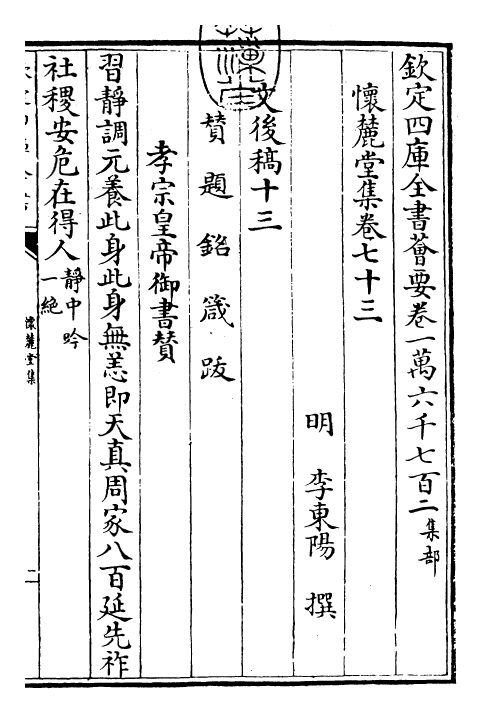 欽定四庫全書薈要卷一萬六千七百二 集部
懷麓堂集卷七十三
明 李東陽 撰
文後稿十三
賛 題 銘 箴 跋
孝宗皇帝御書賛
習靜調元養此身此身無恙即天真周家八百延先祚
社稷安危在得人 靜中吟一絶
懷麓堂集